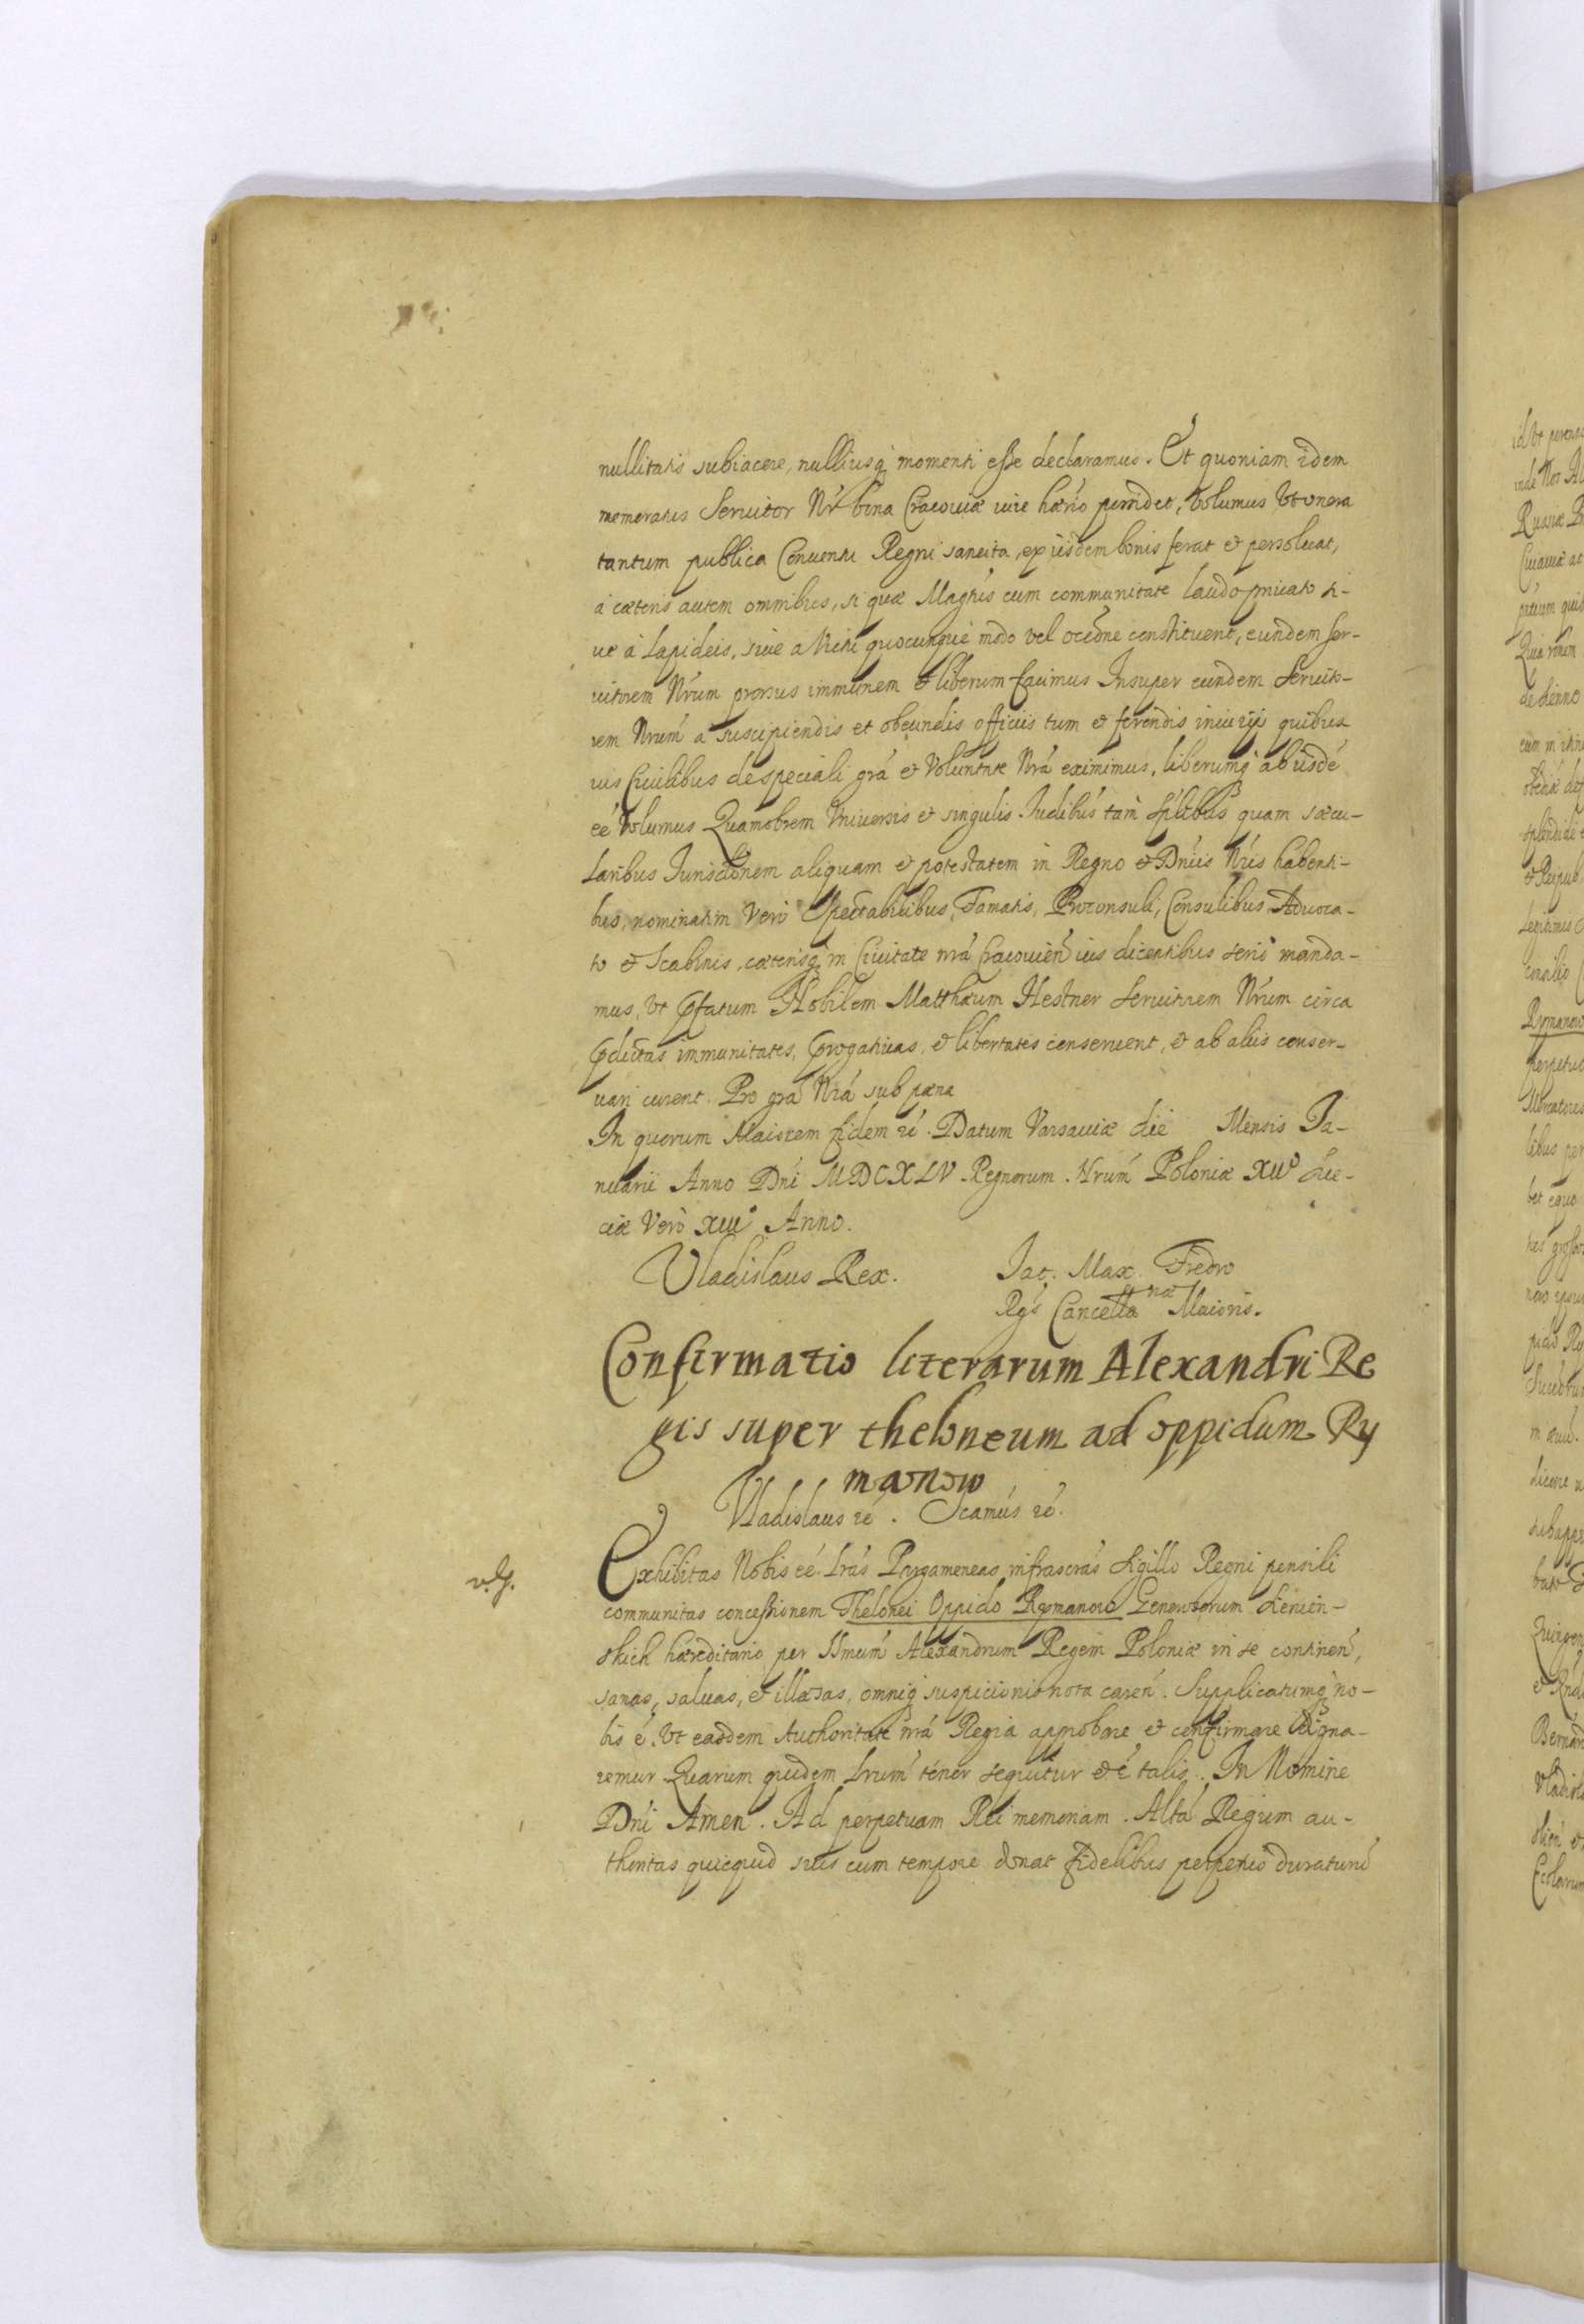 nullitatis subiacere, nulliusq́ momenti esse declaramus. Et quoniam idem
memoratus Seruitor Nr̃ bona Cracouiæ iure hærio possidet, Volumus Vt onera
tantum publica Conuentu Regni sancita, ex ijsdem bonis ferat et persoluat,
á cæteris autem omnibus, si quæ Magr̃us cum communitate laudo priuato si-
ue á Lapideis, siue a Vicis quocunque modo vel occõne constituent, eundem ser-
uitorem Nrúm prorsus immunem et liberum facimus Insuper eundem Seruito-
rem Nrúm á suscipiendis et obeundis officiis tum et ferendis iniurijs quibus
uis Ciuilibus de speciali grá et Voluntate Nrá eximimus, liberumq́ ab ijsdé
eé Volumus Quamobrem Vniuersis et singulis Iudibus tam Splibus quam sæcu-
laribus Iurisdõnem aliquam et potestatem in Regno et Dńiis Nris habenti-
bus, nominatim Veró Spectabilibus, Famatis, Proconsuli, Consulibus Aduoca-
to et Scabinis, cæterisq́ in Ciuitate nrá Cracouień ius dicentibus serió manda-
mus, Vt pfatum Nobilem Matthæum Hestner Seruitorem Nrúm circa
pdictas immunitates, progatiuas, et libertates conseruent, et ab aliis conser-
uari curent. Pro grá Nrá sub pæna
In quorum Maiorem fidem ré. Datum Varsauiæ die Mensis Ia-
nuarii Anno Dńi MDCXLV Regnorum Nrúm Poloniæ XIIº Sue-
ciæ Veró XIIIº Anno.
Vladislaus Rex. Iac. Max. Fredro
Rgś Cancellanæ Maioris.
Confirmatio literarum Alexandri Re
gis super theloneum ad oppidum Ry
manow
Vladislaus ré. Scamús ré.
v.g.
Exhibitas Nobis eé Lrás Pergameneas infrascrás Sigillo Regni pensili
communitas concessionem Thelonei Oppido Rymanow Generosorum Sienień-
skich hæreditario per Ilmum Alexandrum Regem Poloniæ in se continen,
sanas, saluas, et illæsas, omniq́ suspicionis nota careń. Supplicatumq́ no-
bis é, Vt easdem Authoritate nrá Regia approbare et confirmare digna-
remur Quarum quidem Lrum tenor sequitur et é talis. In Nomine
Dńi Amen. Ad perpetuam Rei memoriam. Altá Regum au-
thoritas quicquid suis cum tempore donat fidelibus perpetuo duraturú